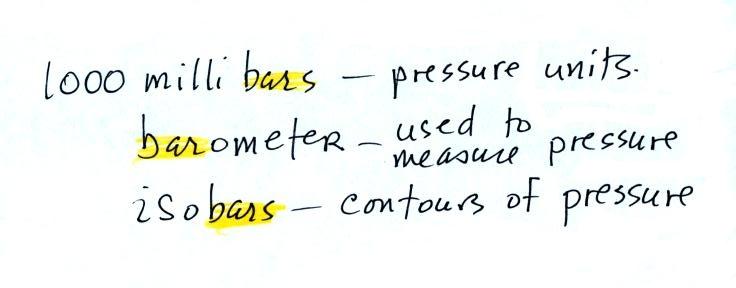 1000 milli bars – pressure units.
barometer – used to measure pressure
isobars – contours of pressure